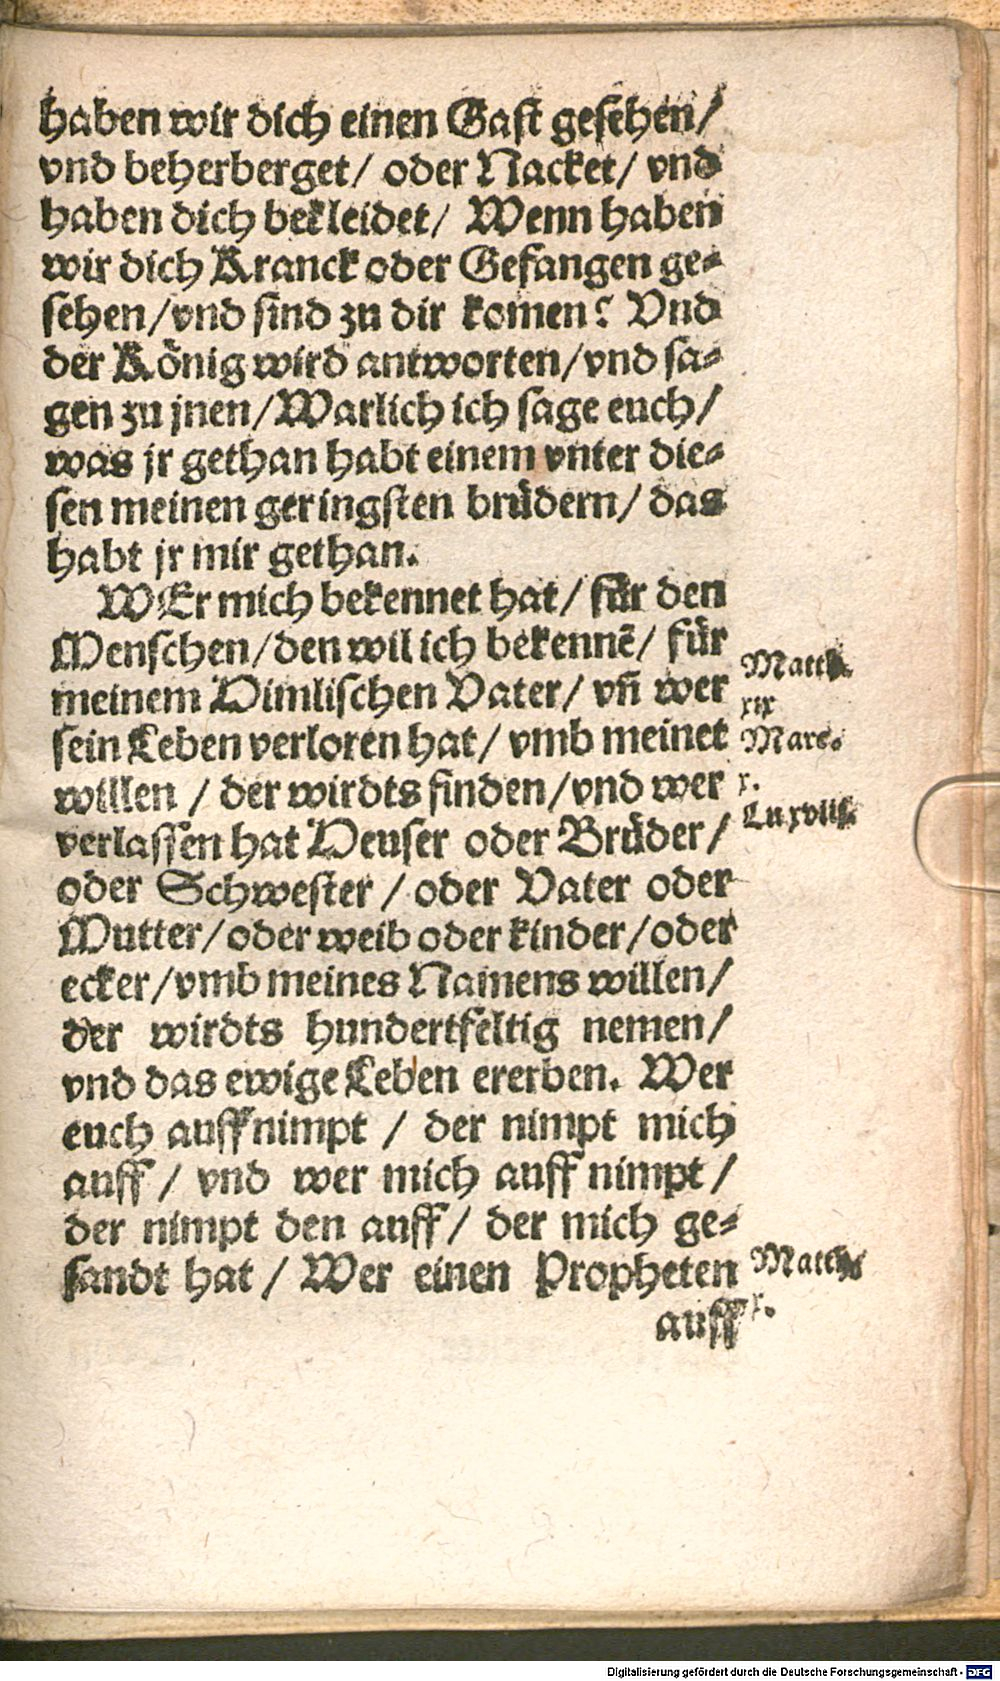 haben wir dich einen Gast gesehen/
vnd beherberget/ oder Nacket/ vnd
haben dich bekleidet/ Wenn haben
wir dich Kranck oder Gefangen ge⸗
sehen/vnd sind zu dir komen? Vnd
der König wird antworten/vnd sa⸗
gen zu jnen/Warlich ich sage euch/
was jr gethan habt einem vnter die⸗
sen meinen geringsten brüdern/ das
habt jr mir gethan.
WEr mich bekennet hat/ für den
Menschen/den wil ich bekennē/ für
meinem Himlischen Vater/ vñ wer
sein Leben verloren hat/ vmb meinet
willen / der wirdts finden/vnd wer
verlassen hat Heuser oder Brüder/
oder Schwester / oder Vater oder
Mutter/oder weib oder kinder/oder
ecker/vmb meines Namens willen/
der wirdts hundertfeltig nemen/
vnd das ewige Leben ererben. Wer
euch auffnimpt / der nimpt mich
auff / vnd wer mich auff nimpt/
der nimpt den auff/ der mich ge⸗
sandt hat / Wer einen Propheten
auff
Matth.
xix
Marc.
x.
Lu xviii.
Matth.
x.
Digitalisierung gefördert durch die Deutsche Forschungsgemeinschaft - DFG